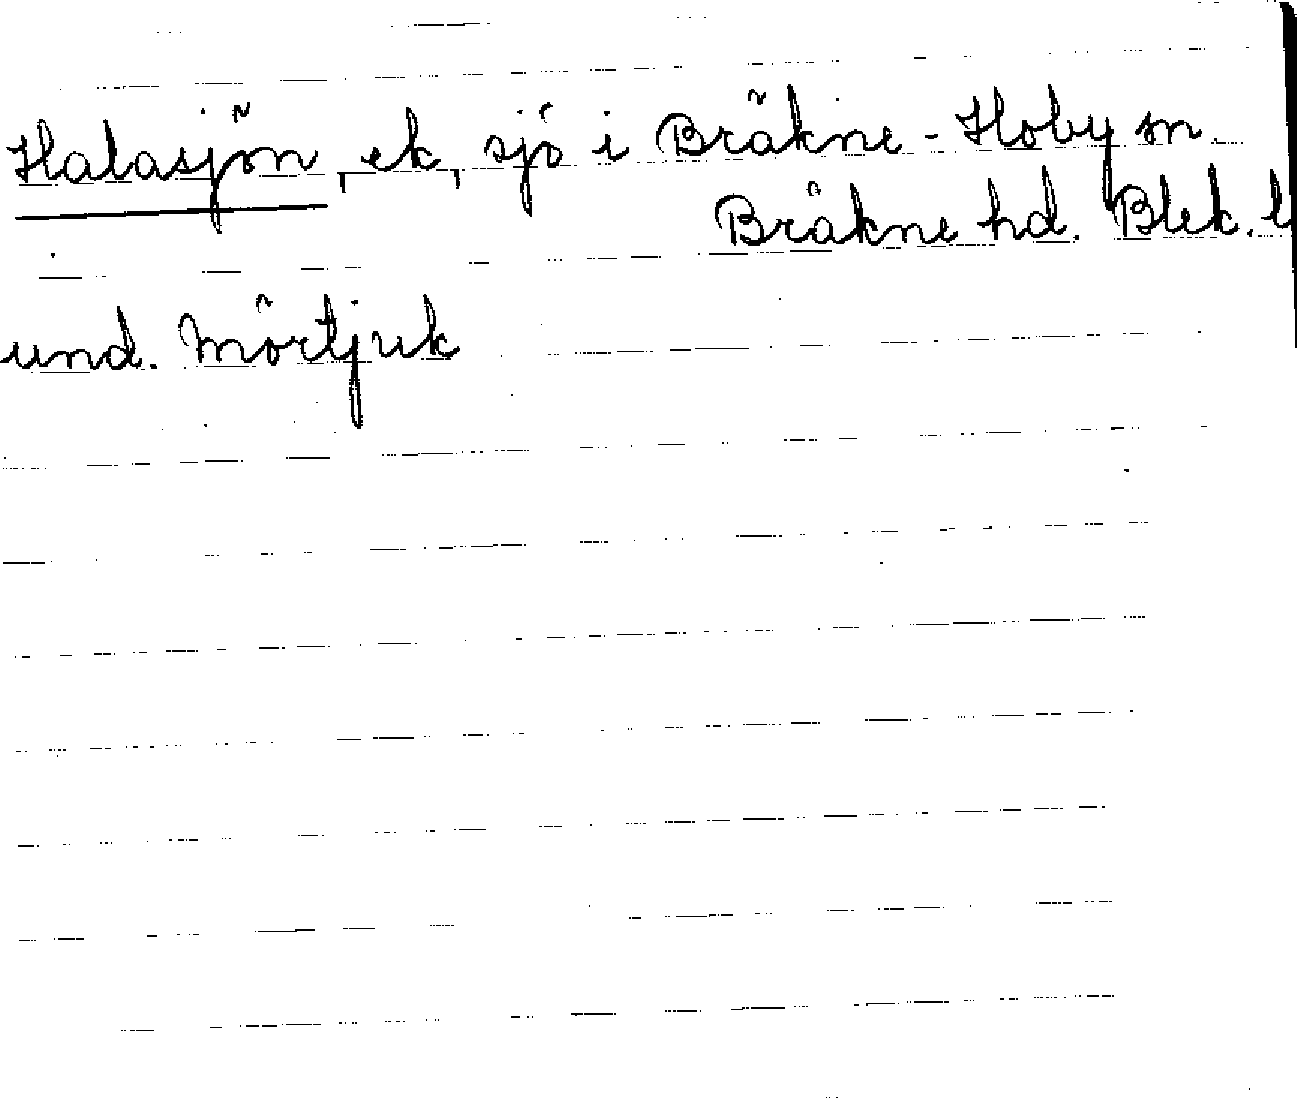 Halasjön, ek, sjö i Bräkne-Hoby sn.
Bräkne hd. Blek. l
und. Mörtjuk